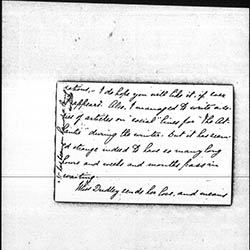 cations,- I do hope you will like it, if ever
it appears. Also, I managed to write a se-
ries of articles on "social" lines for "The At-
lanta" during the winter. But it has seem-
ed strange indeed to have so many long
hours and weeks and months pass in
waiting.
Miss Dudley sends her love, and means